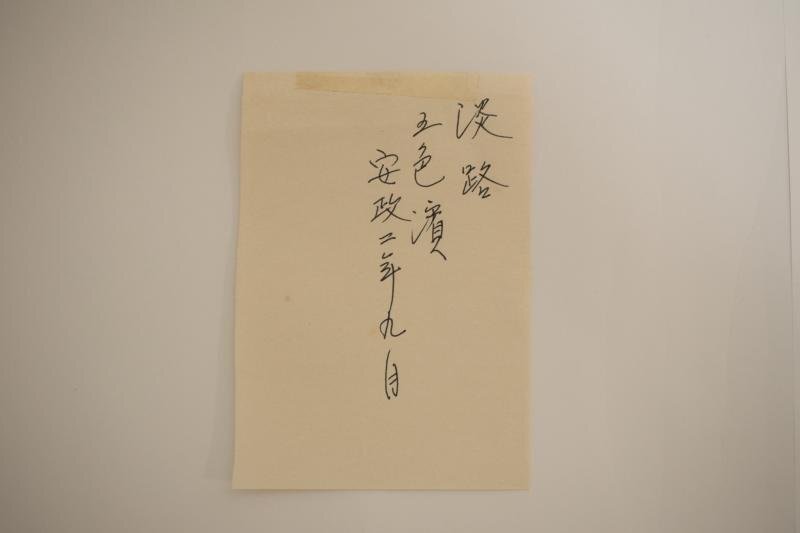 淡路
五色濱
安政二年九月